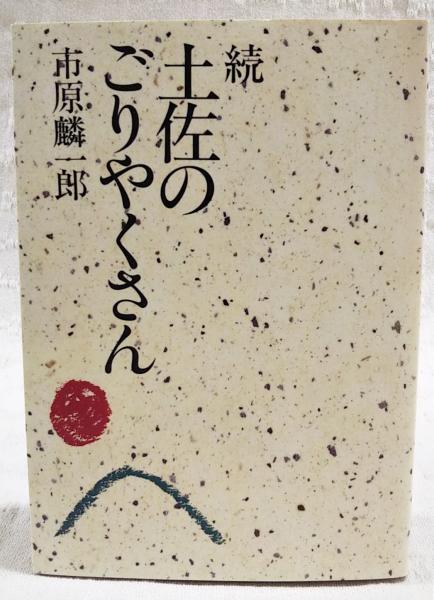 続
土佐の
ごりやくさん
市原麟一郎